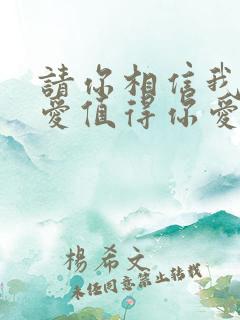 請你相信我
愛值得你愛
楊希文
未任同意禁止转载